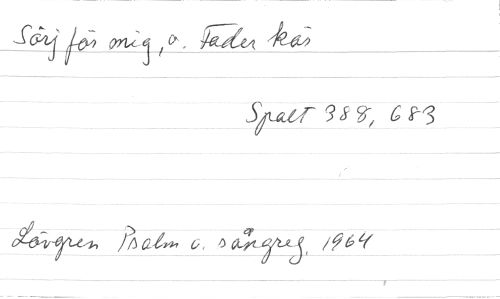 Sörj för mig, o. Fader kär
Spalt 388, 683
Lövgren Psalm o. sångreg. 1964